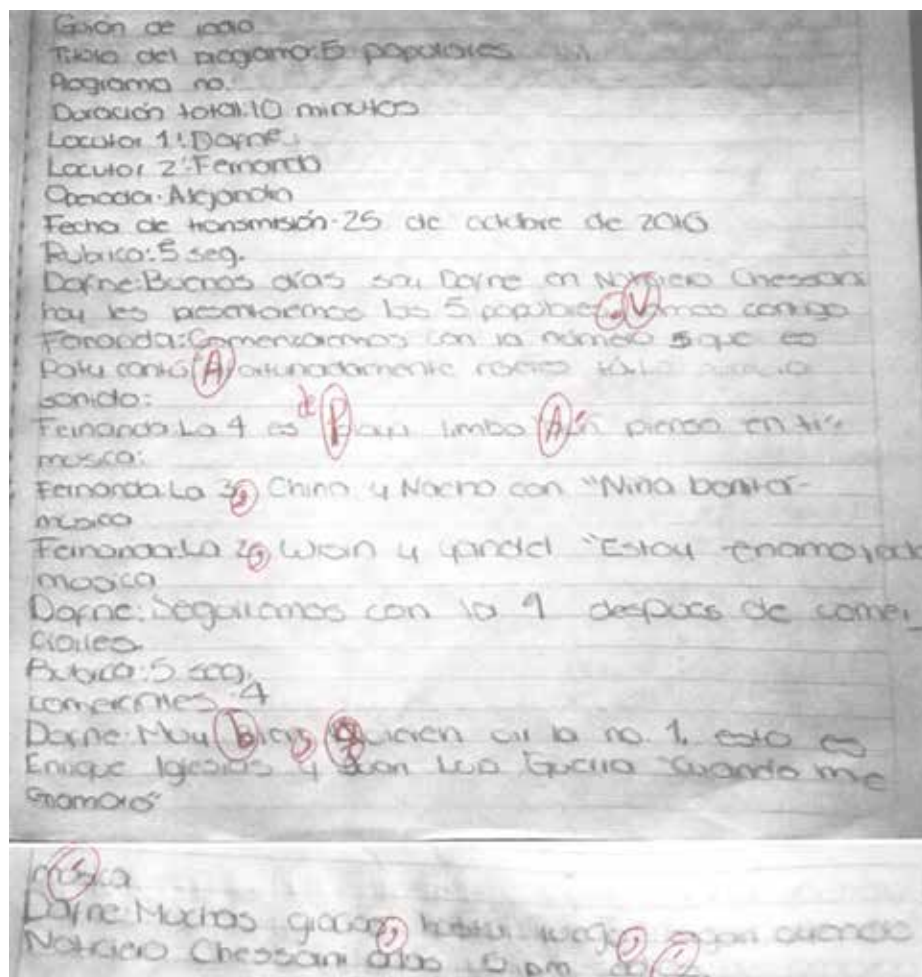 Guión de radio
Titulo del programa: 5 populares
Programa no.
Duración total: 10 minutos
Locutor 1: Dafne
Locutor 2: Fernanda
Operador: Alejandro
Fecha de transmisión: 25 de octubre de 2010
Rubrica: 5 seg.
Dafne: Buenos días soy Dafne en Noticiero Chessani
hoy les presentaremos las 5 populares. Vamos contigo
Fernanda: Comenzaremos con la número 5 que es
Paty cantú Afortunadamente
sonido:
Fernanda: La 4 es de Playa limbo "Aún pienso en ti"
musica:
Fernanda: La 3, Chino y Nacho con "Niña bonita"
musica
Fernanda: La 2, Wisin y yandel "Estoy enamorado
musica
Dafne: Seguiremos con la 1 después de comer_
ciales.
Rubrica: 5 seg.
comerciales: 4
Dafne: Muy bien, quieren oir la no. 1. esta es
Enrique Iglesias y Juan Luis Guerra "Cuando me
enamoro"
música
Dafne: Muchas gracias, hasta luego,
Noticiero Chessani a las pm